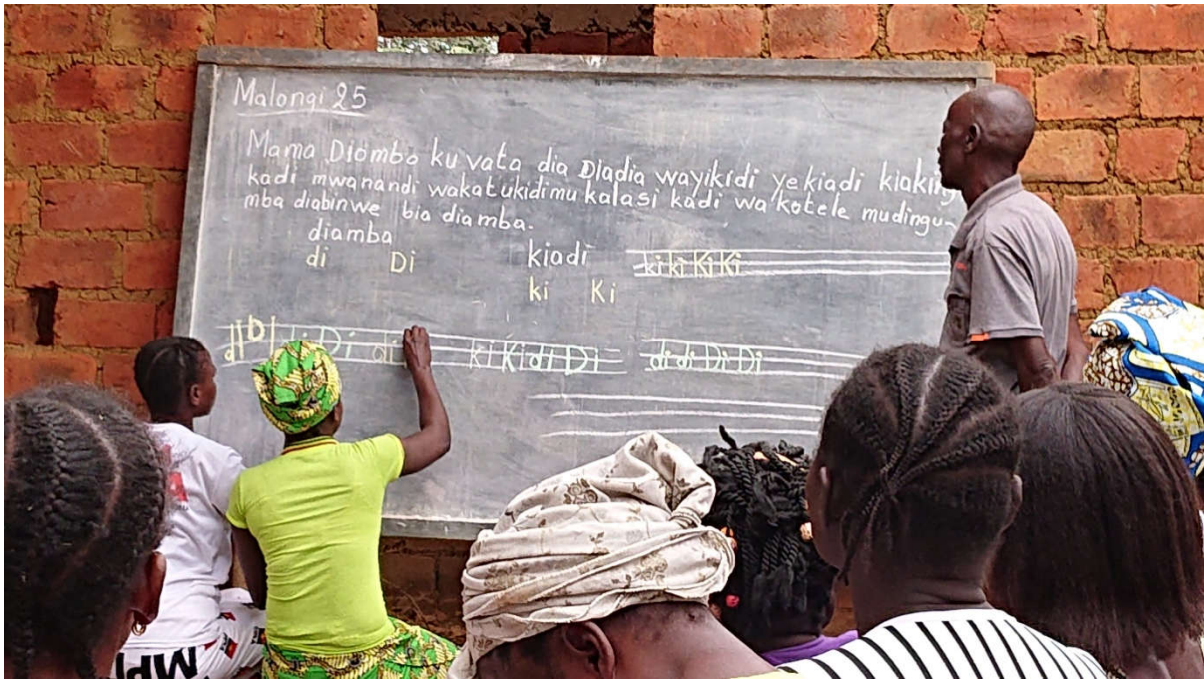 Malongi 25
Mama Diomba ku vata dia Diadia wayikidi ye kiadi
kadi mwanandi wakatukidimu kalasi kadi wa kotele mudingu-
mba diabinwe bia diamba.
diamba
di Di
kiadi
ki Ki
ki ki Ki Ki
di Di di
ki Ki di Di
di di Di Di
MP